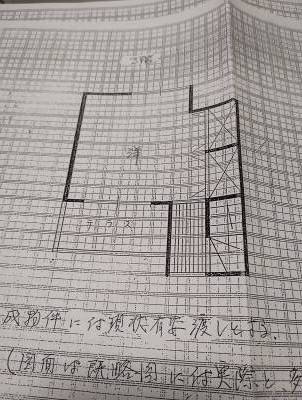 3階
洋
テラス
成物件には現状有姿渡しとする.
(図面は概略図に付実際と